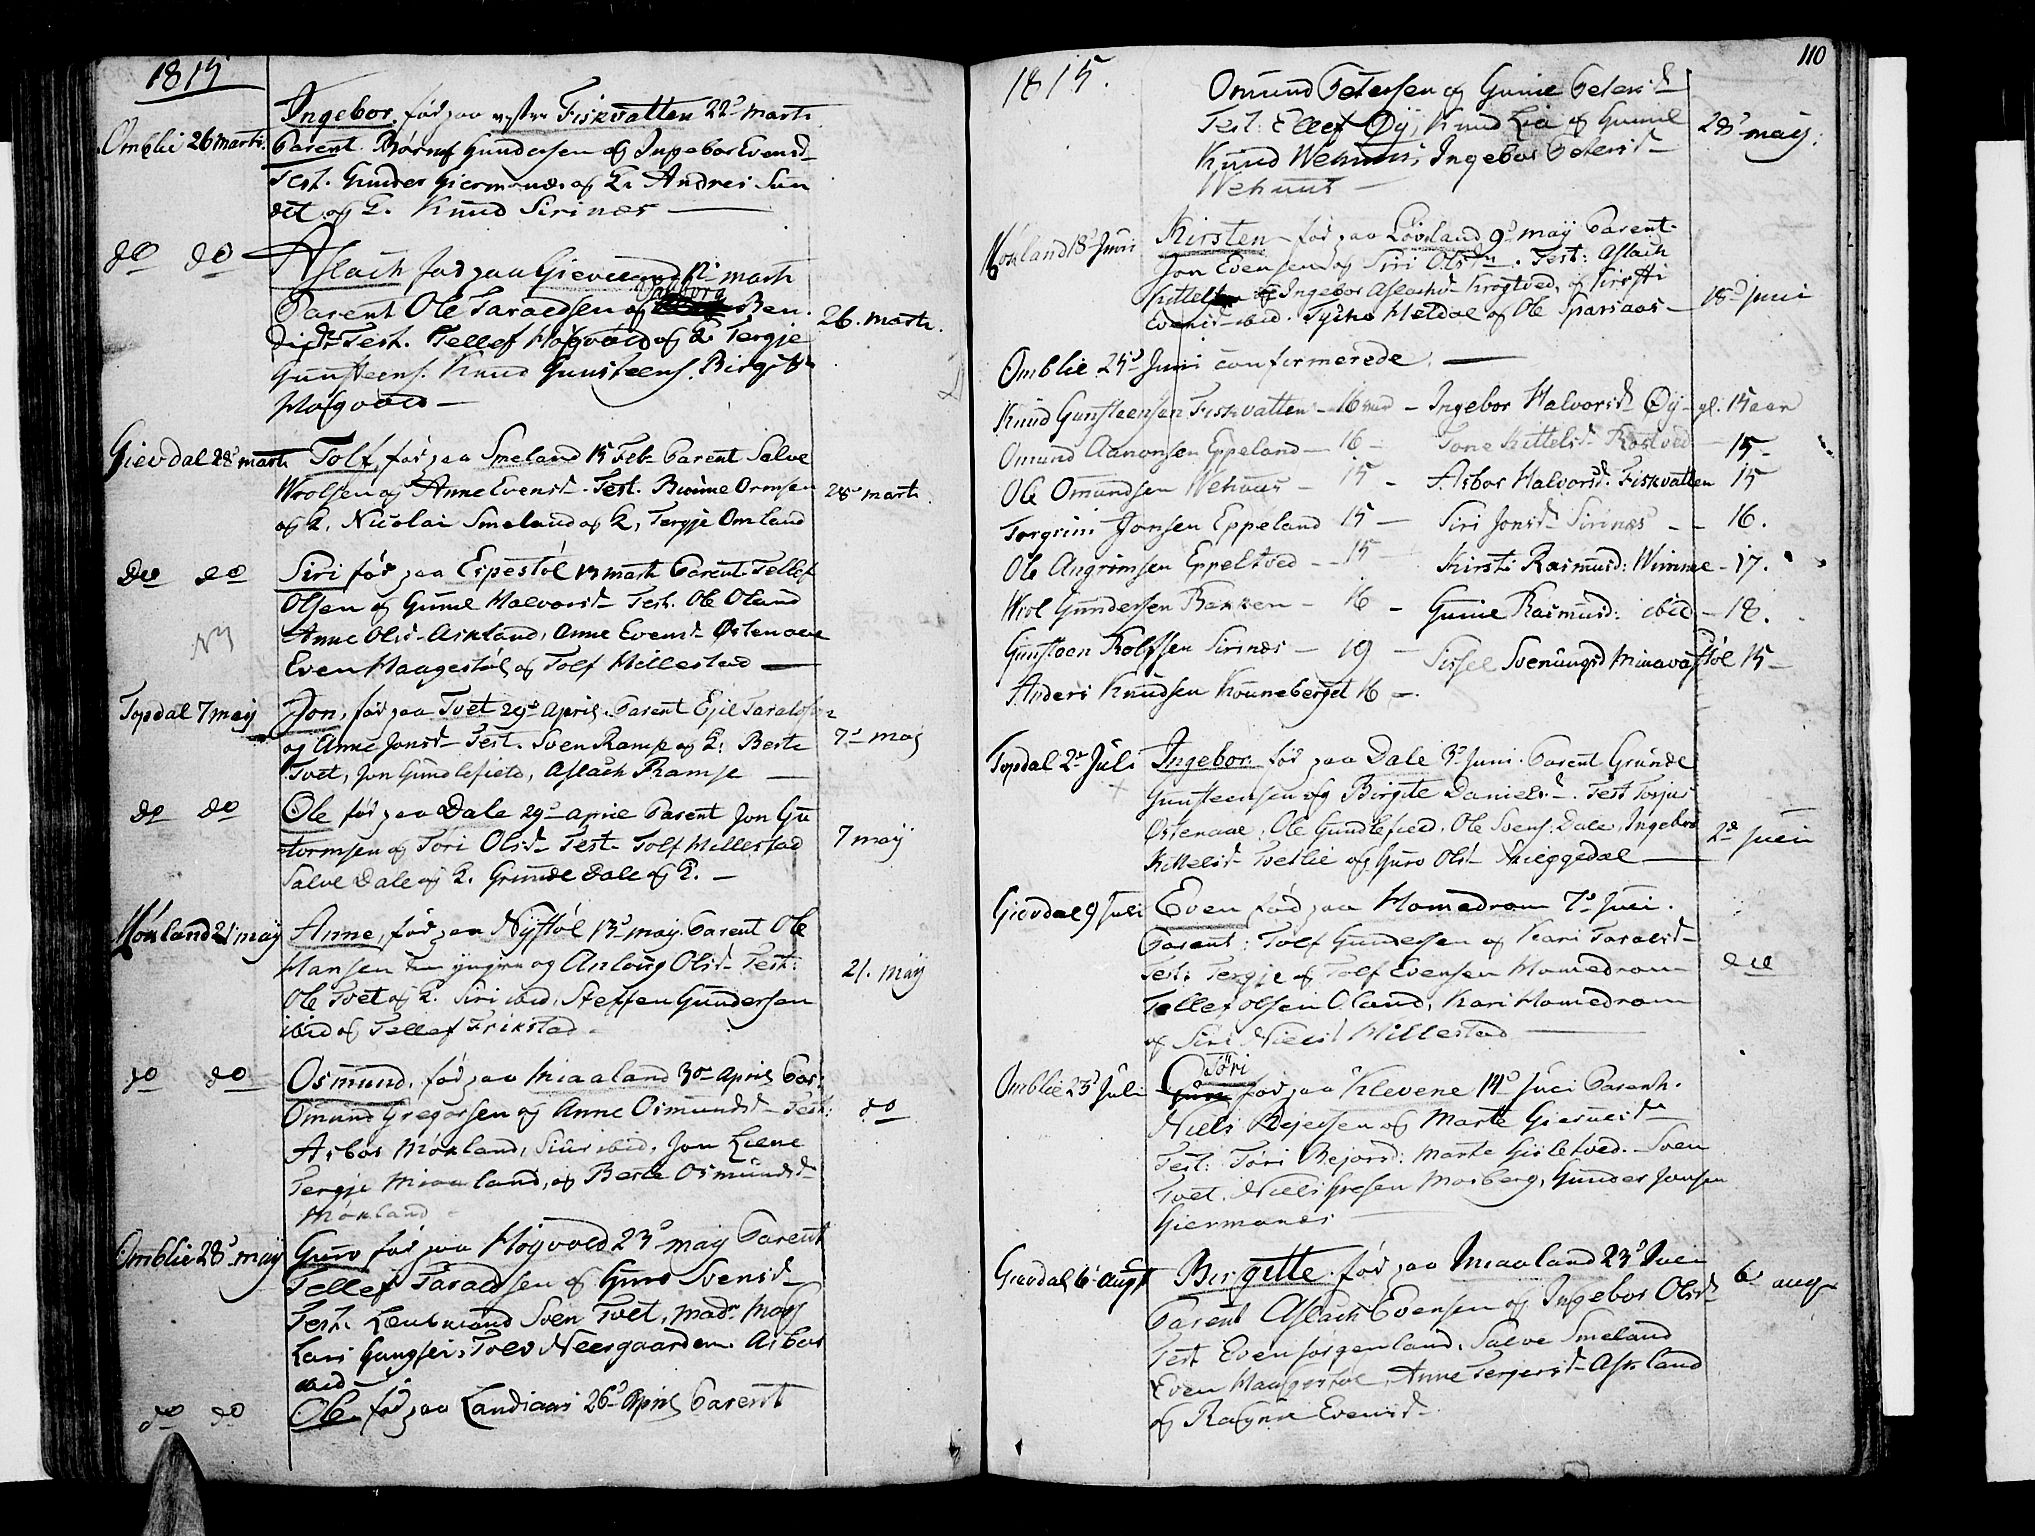 1815
Ingebor, fød paa vestre Fiskvatten 22d marti
Omblie 26 marti. Parent Gundersen og Ingebor Evensd
Test. Gunder Giermonæs og K. Andrei Sun
det og K. Knud Sirinæs
do do Aslach fød paa 12 marti
Parent Ole Taraldsen og Valborg Ben
digtsd Test. Tellef Høgvold og K. Tergje 26. marti.
Gunsteens. Knud Gunsteens. Birgitte
Høgvold
Gievdal 28d marti Tolf, fød paa Smeland 15 Feb. Parent Salve
Wrolsen og Anne Evensd. Test. Ormsen 28 marti.
og K. Nicolai Smeland og K, Tergje Omland
do do Siri fød paa Espestøl 13 marti Parent Tellef
Olsen og Gunil Halvorsd Test. Ole Oland
Anne Olsd Askland, Anne Evensd Østenaae
Even Haagestøl og Tolf Hillestad
Topdal 7 may Jon, fød paa Tvet 29d April. Parent Ejel Taraldsen
og Anne Jonsd Test. Sven Ramse og K: Berte 7d may
Tvet, Jon Gundlefield, Aslach Ramse
do do Ole fød paa Dale 29d april Parent Jon Gu
tormsen og Tori Olsd Test Tolf Hillestad 7 may
Salve Dale og K. Grunde Dale og K.
Mökland 21 may Anne, fød paa Nystøl 13d may. Parent Ole
Hansen den yngere og Anloug Olsd Test: 21. may
Ole Tvet og K. Siri ibid, Steffen Gundersen
ibid og Tellef Frikstad
do do Osmund, fød paa Miaaland 30 April Par:
Omund Gregersen og Anne Osmundsd Test: do
Asbor Mökland, Siur ibid, Jon Liene
Tergje Miaaland, og Berte Osmundsd
Mökland
Omblie 28d may Guro fød paa Høgvold 23d may Parent
Tellef Taraldsen og Guro Svensd
Test. Leutnand Sven Tvet, mad:
Lari Gangsei, Tolv Neergaarden Asbor
ibid
do do Ole fød paa Landaas 26d April Parent
110
1815.
Omund Petersen og Gunie Petersd
Test: Ellef Øy, Knud Lia og Gunil 28d may.
Knud Wehuus, Ingebor Petersd
Wehuus
Mökland 18d Juni Kirsten fød paa Løvland 9d may Parent
Jon Evensen og Siri Olsdr. Test: Aslach
Kittels og Ingebor Aslachsd Krostved, og Kirsti 18d Juni
Evensd ibid. Tycho Heldal og Ole Sparsaas
Omblie 25d Juni confirmerede
Knud Gunsteensen Fiskvatten - 16 aar - Ingebor Halvorsd Øy gl. 15 aar
Omund Aanonsen Eppeland - 16 - Tone Kittelsd Rostved - 15
Ole Omundsen Wehuus - 15 - Asbor Halvorsd. Fiskvatten 15
Torgrim Jonsen Eppeland 15 - Siri Jonsd Sirinæs - - 16.
Ole Angrimsen Eppeltved - 15 Kirsti Rasmusd: Wimme - 17.
Wrol Gundersen Bakken - 16 - Gunie Rasmusd: ibid - 18.
Gunsteen Rolfsen Sirinæs - 19 - Sissel Svenungsd Minavastøl 15
Anders Knudsen Konneberget 16 -
Topdal 2d Juli Ingebor fød paa Dale 3d Juni. Parent Grunde
Gunsteensen og Birgite Danielsd. Test Torjus
Ostenaae, Ole Gundlefield, Ole Svens: Dale, Ingebor 2d Juli
Kittelsd Tvetlie og Guro Olsd Skieggedal
Gievdal 9 Juli Even fød paa Homedrom 7d Juli.
Parent: Tolf Gundersen og Kari Taralsd
Test: Tergje og Tolf Evensen Homedrom do
Tellef Olsen Oland, Kari Homedrom
og Siri Nielsd Hillestad
Omblie 23d Juli Tori fød paa Klevene 14d Juli Parent.
Niels Rejersen og Marte Giermsd
Test: Tori Rejersd: Marte Gisletved. Sven
Tvet, Niels Gresen Mosberg, Gunder Jonsen
Giermones
Gievdal 6 Augt Birgitte fød paa Miaaland 23d Juli 6 aug
Parent Aslach Evensen og Ingebor Olsd
Test Even Jørgenland, Salve Smeland
Even Haugestøl, Anne Terjersd Askland
og Ragne Evensd